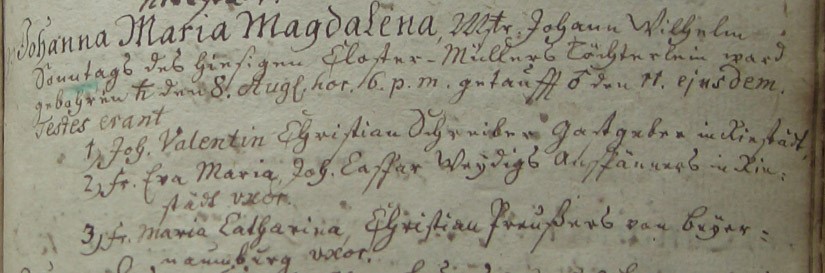 Johanna Maria Magdalena, Mstr. Johann Wilhelm
Sonntags des hiesigen Closter-Müllers Töchterlein ward
gebohren ♄ den 8. Aug. hor. 6. p. m. getaufft ♂ den 11. ejusdem.
Testes erant
1, Joh. Valentin Christian Schreiber Gastgeber in Riestädt,
2, Fr. Eva Maria, Joh. Caspar Weydigs Anspänners in Rie-
städt uxor.
3, Fr. Maria Catharina, Christian Preußers von Beyer-
naumburg uxor.